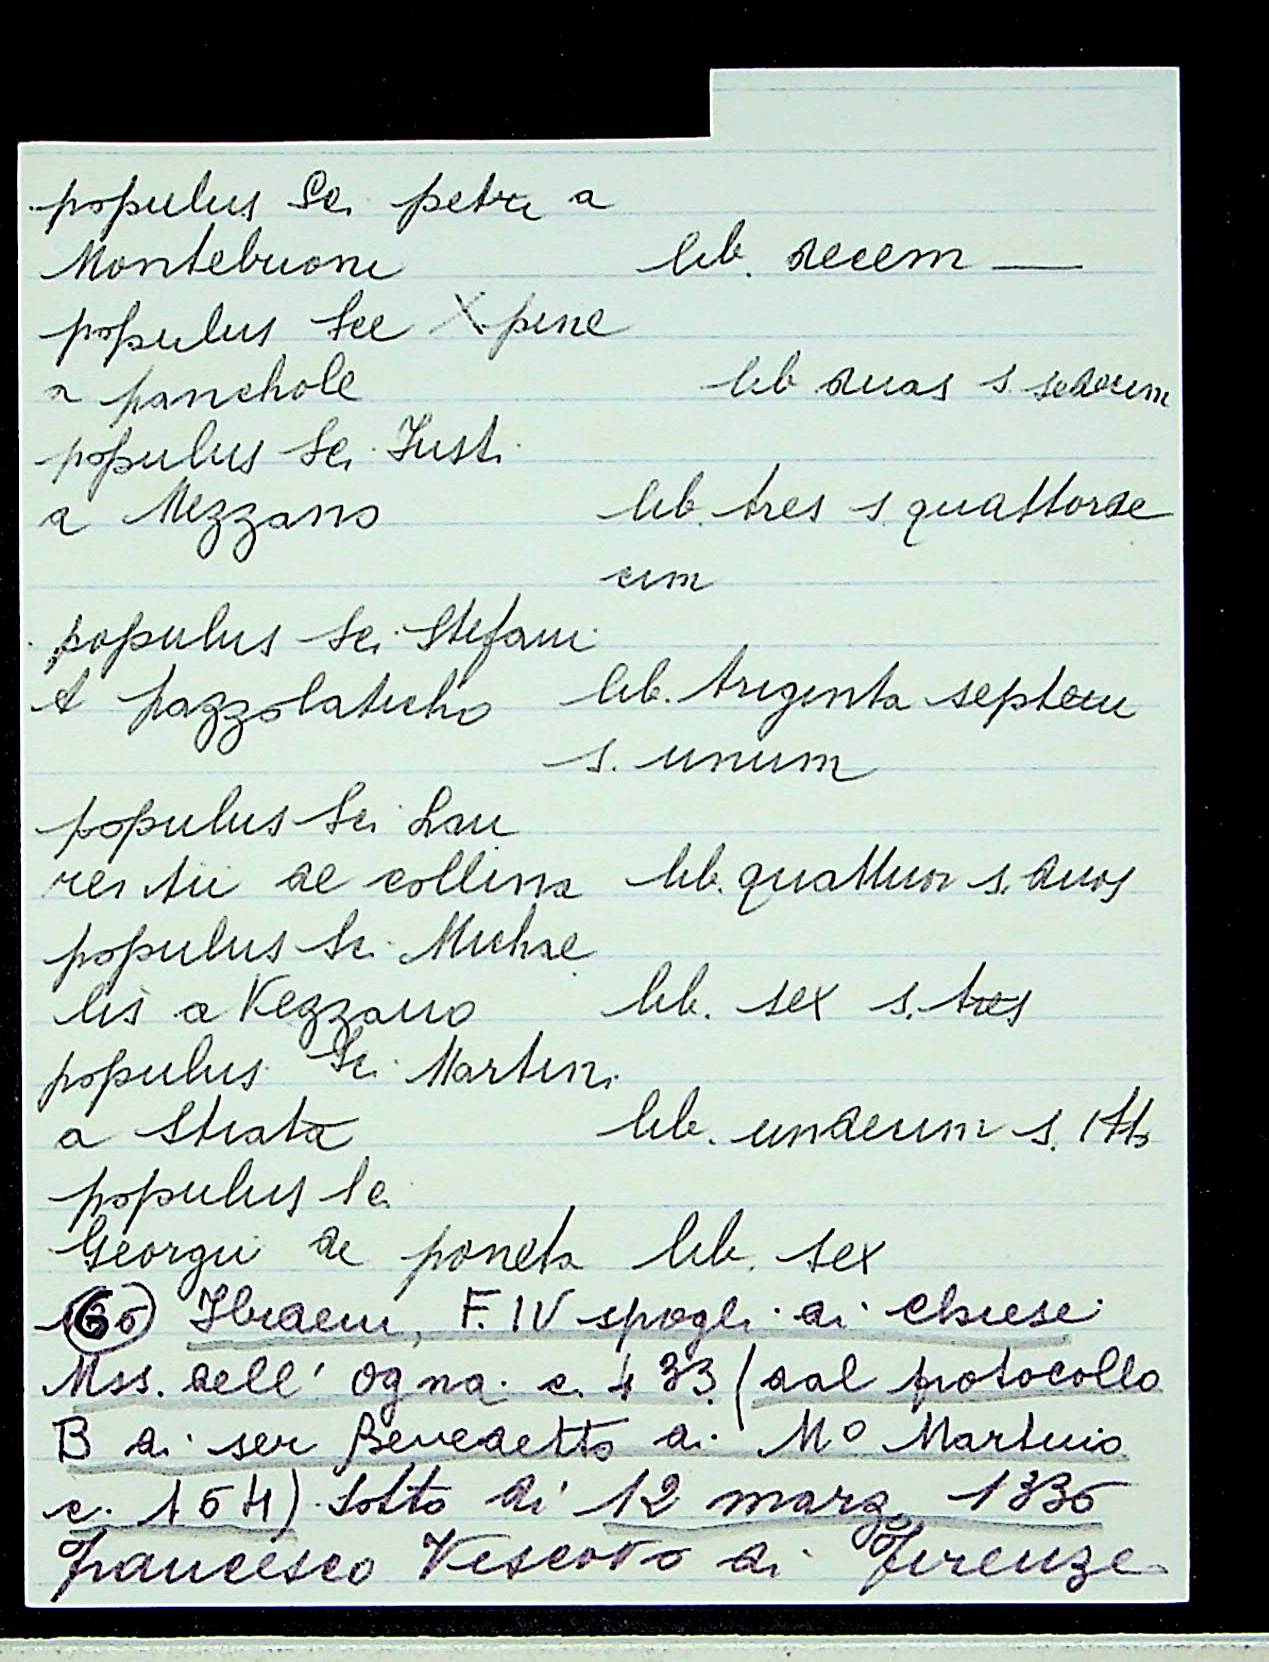 populus Sci petri a
Montebuoni lib. decem —
populus Sce Xpine
a panchole lib duas s sedecim
populus Sci Justi
a Mezzano lib. tres s quattorde
cim
populus Sci Stefani
A pazzolaticho lib. triginta septem
s. unum
populus Sci Lau
rentii de collina lib. quattuor s. duos
populus Sci Michae
lis a Vezzano lib. sex s. tres
populus Sci Martini
a Strata lib. undecim s. otto
populus Sci
Georgii de poneta lib. sex
Ibidem, F. IV spogli di chiese
Mss. dell' Ogna c. 433 (dal protocollo
B di ser Benedetto di Mº Martino
c. 164) Sotto di 12 marzo 1336
Francesco Vescovo di Firenze